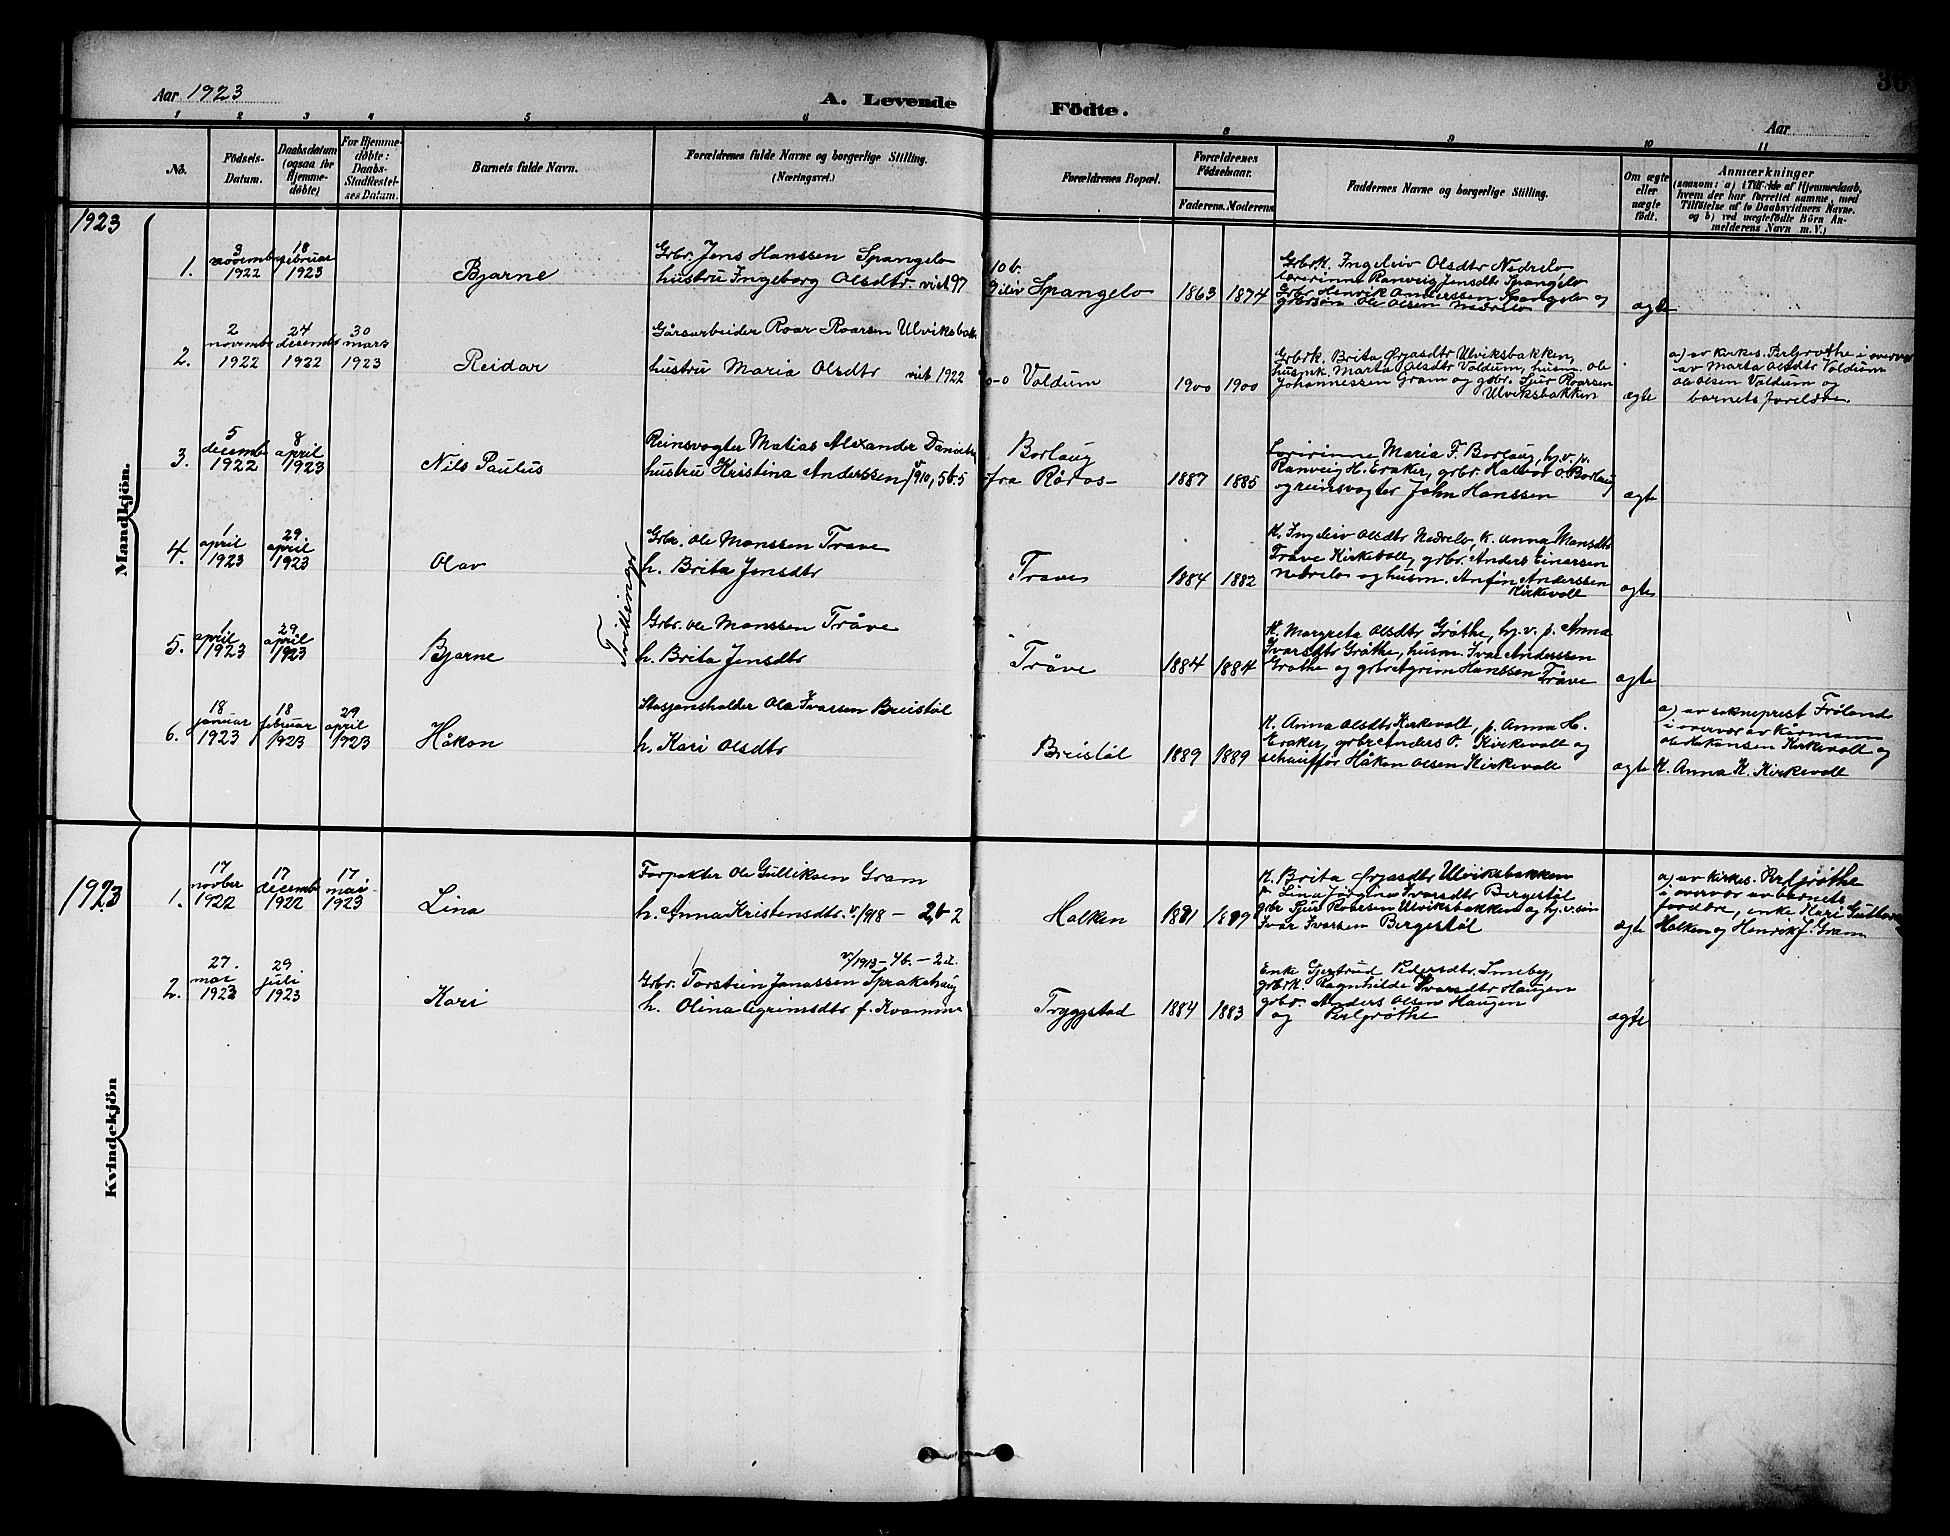 Aar 1923
A. Levende
Födte.
Aar
36
1 2 3 4 5 6 8 9 10 11
No.
Födsels-
Datum.
Daabsdatum
(ogsaa for
Hjemme-
döbte)
For Hjemme-
döbte:
Daabs-
Stadfæstel-
ses Datum.
Barnets fulde Navn.
Forældrenes fulde Navne og borgerlige Stilling.
(Næringsvei.)
Forældrenes Bopæl.
Forældrenes
Födselsaar.
Faderens. Moderens
Faddernes Navne og borgerlige Stilling.
Om ægte
eller
uægte
födt.
Anmærkninger
(saasom: a) i Tilfælde af Hjemmedaab,
hvem der har forrettet samme, med
Tilföielse af to Daabsvidners Navne.
og b) ved uægtefödte Börn An-
melderens Navn m. V.)
Mandkjön.
1923
1.
3
novembr
1922
18
februar
1923
Bjarne
Grbr. Jens Hanssen Spangelo
hustru Ingeborg Olsdtr. viet 97
10 b.
Spangelo
1863 1874
Grbrk. Ingeleiv Olsdtr Nedrelo
lærerinne Ranveig Jensdtr Spangelo
Grbr Henrik Anderssen Spangelo og
grbrsøn Ole Olsen Nedrelo
ægte
2.
2
novembr
1922
24
decembr
1922
30
mars
1923
Reidar
Gårsarbeider Roar Roarsen Ulviksbakk
hustru Maria Olsdtr viet 1922
0-0 Voldum
1900 1900
Grbrk. Brita Ørjasdtr Ulviksbakken,
husmk. Marta Olsdtr Voldum, husm. Ole
Johannessen Gram og gbr. Sjur Roarsen
Ulviksbakken
ægte
a) av kirkes. Per Grøthe i overvær
av Marta Olsdtr Voldum
Ole Olsen Voldum og
barnets foreldre.
3.
5
decembr
1922
8
april
1923
Nils Paulus
Reinsvogter Matias Alexander Danielsen
hustru Kristina Anderssen v/1910, 5 b. 5
Borlaug
fra Röros
1887 1885
Lærerinne Maria F. Borlaug, hj.v.p.
Ranveig H. Eraker, grbr. Halvor O. Borlaug
og reinsvogter John Hanssen
ægte
4.
1
april
1923
29
april
1923
Olav
Tvillinger
Grbr. Ole Monssen Trave
h. Brita Jensdtr
Trave
1884 1882
K. Ingeleiv Olsdtr Nedrelo, K. Anna Monsdtr
Tråve Kirkevoll, grbr. Anders Einarsen
Nedrelo og husm. Anfin Anderssen
Kirkevoll
ægte
5.
1
april
1923
29
april
1923
Bjarne
Grbr. Ole Monssen Tråve
h. Brita Jensdtr
Tråve
1884 1884
K. Margreta Olsdtr Grøthe, hj.v. p. Anna
Ivarsdtr Grøthe, husm. Ivar Anderssen
Grøthe og grbr Agrim Hanssen Tråve
ægte
6.
18
januar
1923
18
februar
1923
29
april
1923
Håkon
Stasjonsholder Ole Ivarsen Breistøl
h. Kari Olsdtr
Breistøl
1889 1889
K. Anna Olsdtr Kirkevoll, p. Anna H.
Eraker, grbr Anders O. Kirkevoll og
schauffør Håkon Olsen Kirkevoll
ægte
a) av sokneprest Frøland
i overvær av kårmann
Ole Hakonsen Kirkevoll og
K. Anna K. Kirkevoll
Kvindekjön
1923
1.
17
novber
1922
17
decembr
1922
17
mai
1923
Lina
Forpakter Ole Gulliksen Gram
h. Anna Kristensdtr. v/1918 - 2 b 2
Holken
1881 1889
K. Brita Ørjasdtr Ulviksbakken
p. Lina Jörgine Ivarsdtr Bergestøl
grbr Sjur Roarsen Ulviksbakken og hj.v. søn
Ivar Ivarsen Bergestøl
ægte
a) av kirkes. Per Grøthe
i overvær av barnets
foreldre, enke Kari
Holken og Henrik J. Gram
2.
27
mai
1923
29
juli
1923
Kari
v/1913 - 4 b. - 2 d.
Grbr. Torstein Jonassen Sprakehaug
h. Olina Agrimsdtr f. Kvamme
Tryggstad
1884 1883
Enke Gjertrud Pedersdtr. Smeby,
grbrk. Ragnhilde Ivarsdtr Haugen
grbr. Anders Olsen Haugen
og Per Grøthe
ægte